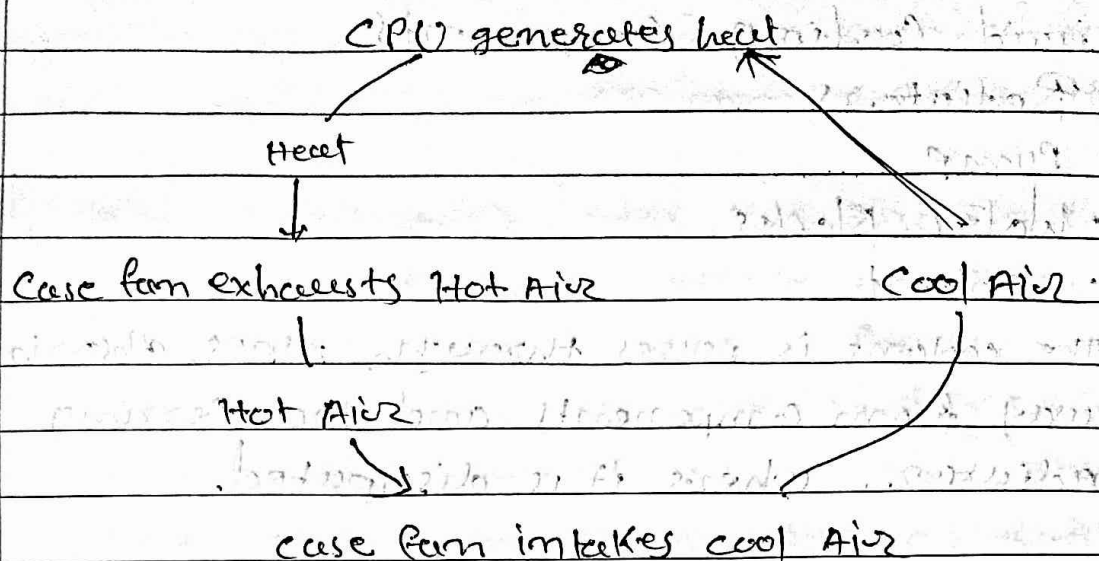 CPU generates heat
Heat
Case fan exhausts Hot Air
Cool Air.
Hot Air
case fan intakes cool Air